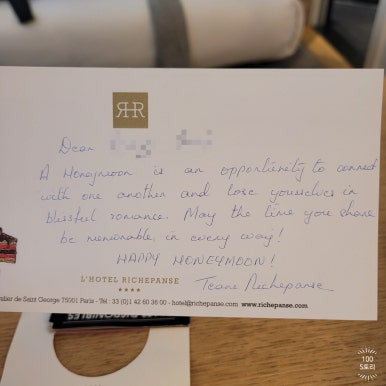 RHR
Dear
A Honeymoon is an opportunity to connect
with one another and lose yourselves in
blissful romance. May the time you share
be memorable, in every way!
HAPPY HONEYMOON!
L'HOTEL RICHEPANSE
★★★★
Team Richepanse
alier de Saint George 75001 Paris - Tél : 33 (0)1 42 60 36 00 - hotel@richepanse.com www.richepanse.com
100
스토리